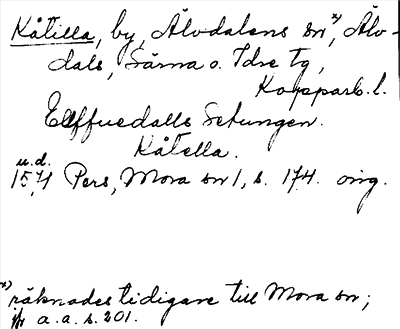 Kåtilla, by, Älvdalens sn*), Älv-
dals, Särna o. Idre tg,
Kopparb. l.
Elffuedalls Setungen.
Kåtella.
u.d.
1571 Pers, Mora sn 1, s. 174. orig.
*) räknades tidigare till Mora sn;
jfr a. a. s. 201.